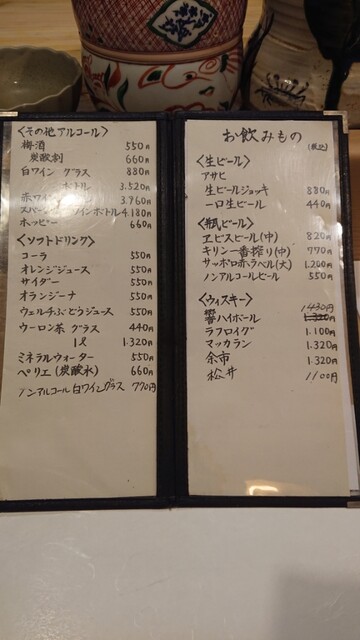 <その他アルコール>
梅酒 550円
炭酸割 660円
白ワイン グラス 880円
ボトル 3.520円
赤ワイン 3.760円
スパークリングワインボトル 4.180円
ホッピー 660円
<ソフトドリンク>
コーラ 550円
オレンジジュース 550円
サイダー 550円
オランジーナ 550円
ウェルチぶどうジュース 550円
ウーロン茶 グラス 440円
1ℓ 1.320円
ミネラルウォーター 550円
ペリエ(炭酸水) 660円
ノンアルコール白ワイングラス 770円
お飲みもの (税込)
<生ビール>
アサヒ
生ビールジョッキ 880円
一口生ビール 440円
<瓶ビール>
ヱビスビール(中) 820円
キリン一番搾り(中) 770円
サッポロ赤ラベル(大) 1.200円
ノンアルコールビール 550円
<ウィスキー>
1430円
響ハイボール 1.320円
ラフロイグ 1.100円
マッカラン 1.320円
余市 1.320円
松井 1100円